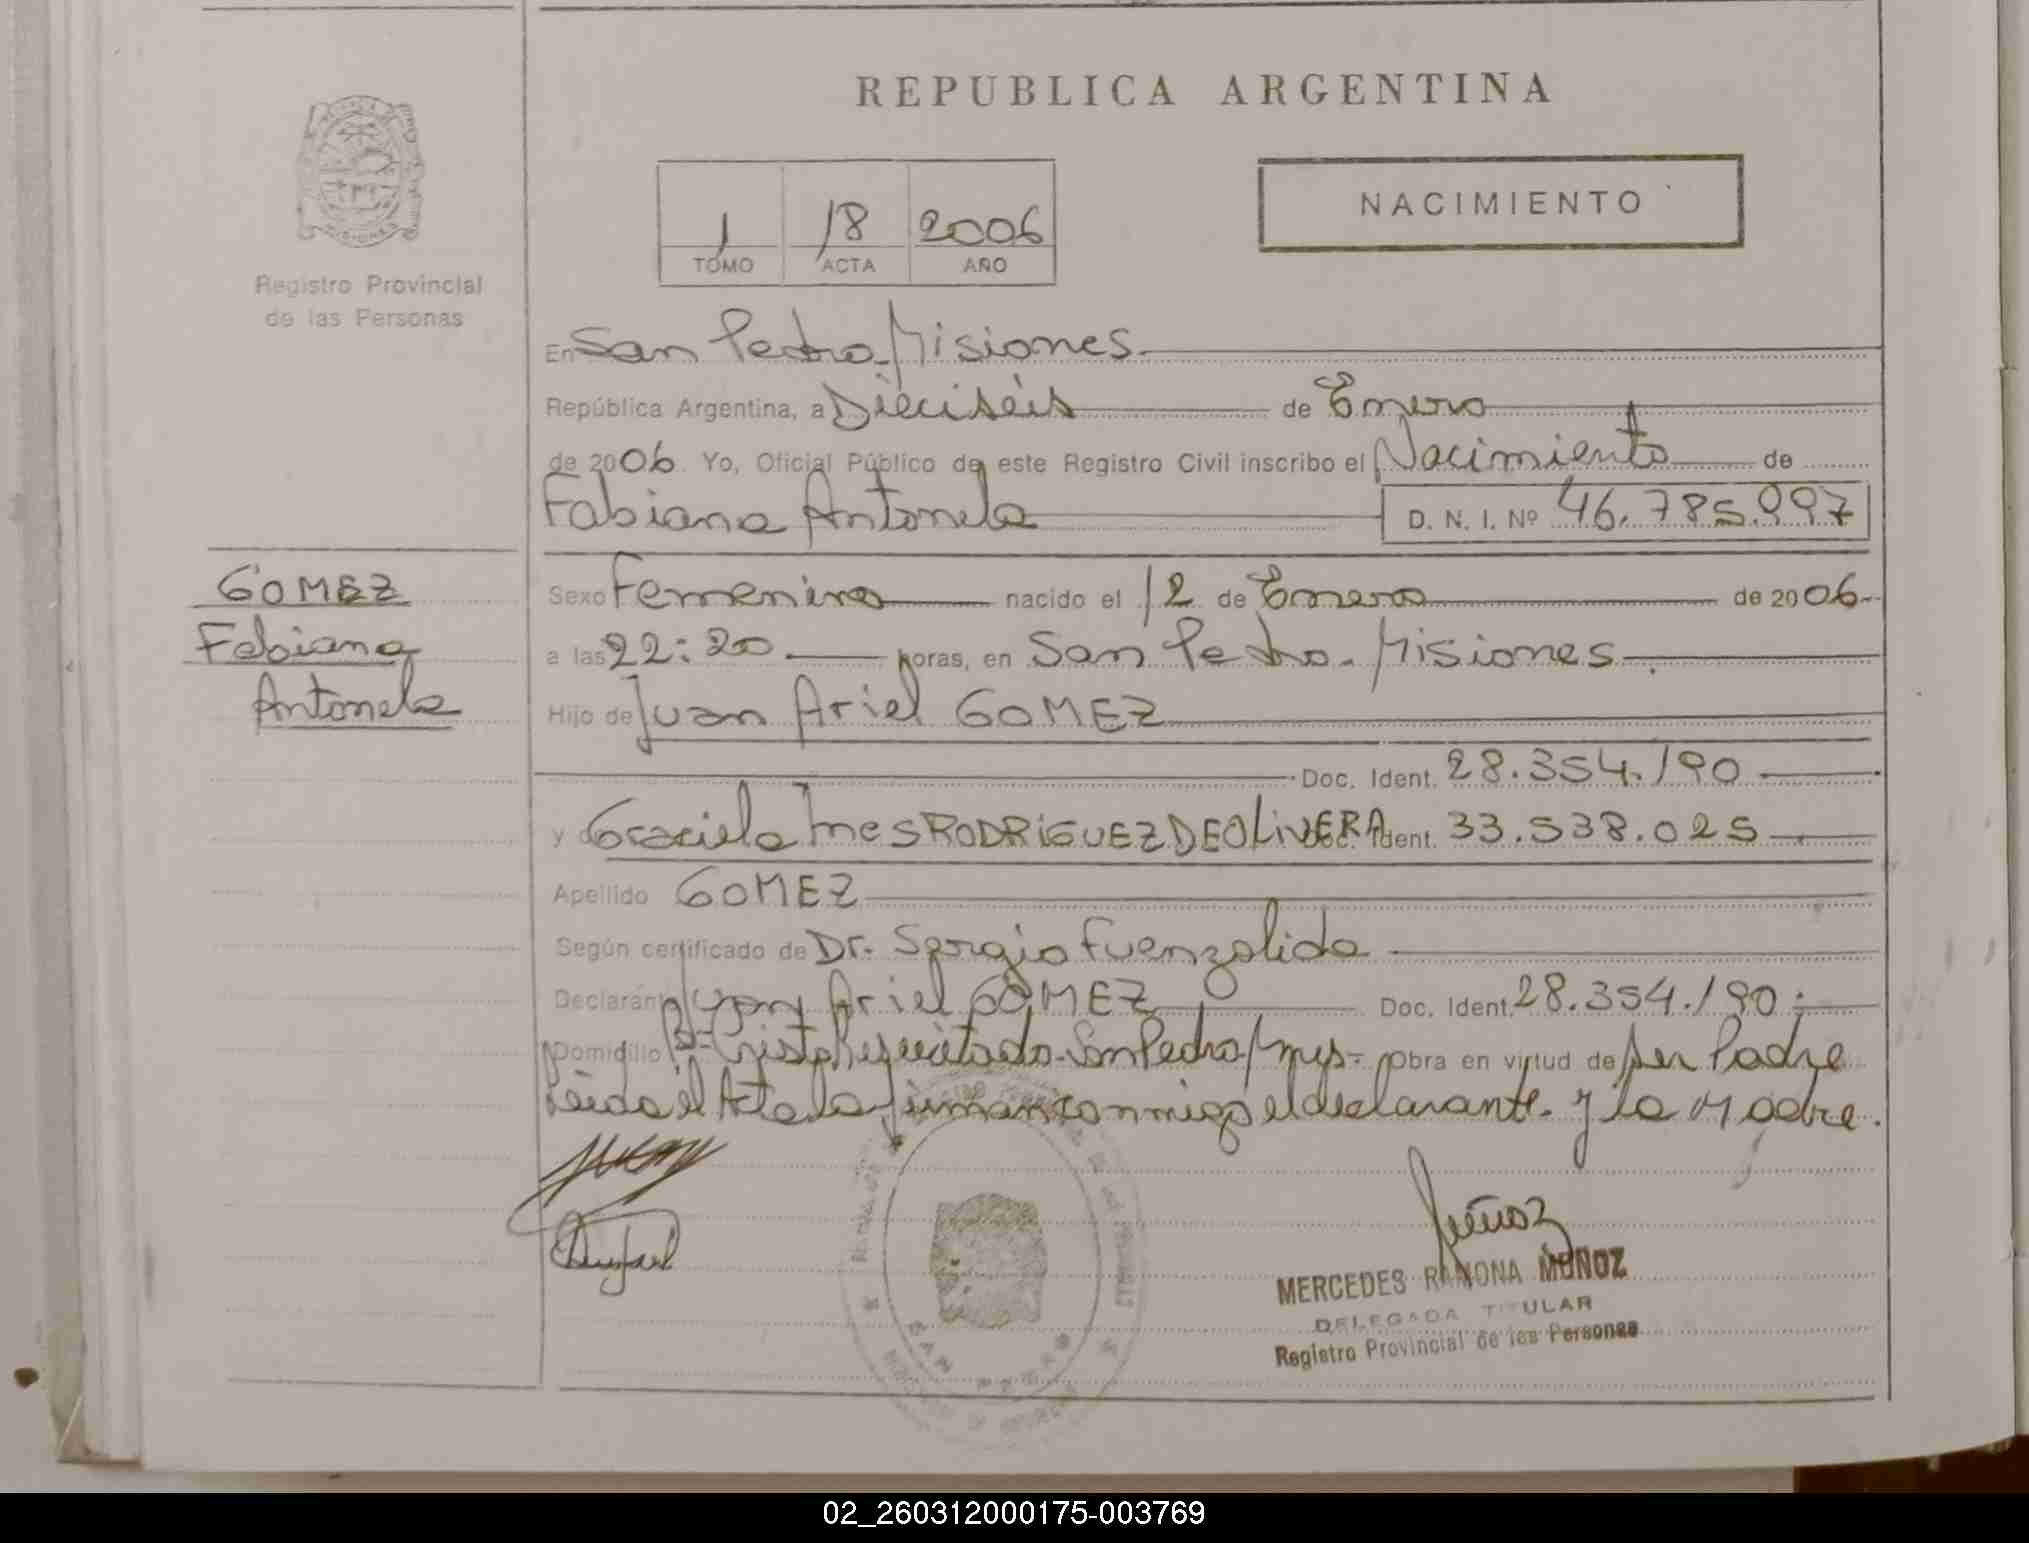 REPUBLICA ARGENTINA
NACIMIENTO
1 18 2006
TOMO ACTA AÑO
Registro Provincial
de las Personas
En San Pedro-Misiones.
República Argentina, a Dieciséis de Enero
de 2006. Yo, Oficial Público de este Registro Civil inscribo el Nacimiento de
Fabiana Antonela D. N. I. Nº 46.785.997
GOMEZ
Fabiana
Antonela
Sexo Femenino nacido el 12 de Enero de 2006-
a las 22:20 horas, en San Pedro-Misiones.
Hijo de Juan Ariel GOMEZ
Doc. Ident. 28.354.190
y de Graciela Ines RODRIGUEZ DE OLIVERA Doc. Ident. 33.538.025
Apellido GOMEZ
Según certificado de Dr. Sergio Fuenzalida
Declarante Juan Ariel GOMEZ Doc. Ident. 28.354.190
Domicilio Bº Cristo Resucitado-San Pedro-Mnes- obra en virtud de ser Padre
Leida el Acta la firman conmigo el declarante y la Madre.
Muñoz
MERCEDES RAMONA MUÑOZ
DELEGADA TITULAR
Registro Provincial de las Personas
SAN PEDRO
02_260312000175-003769